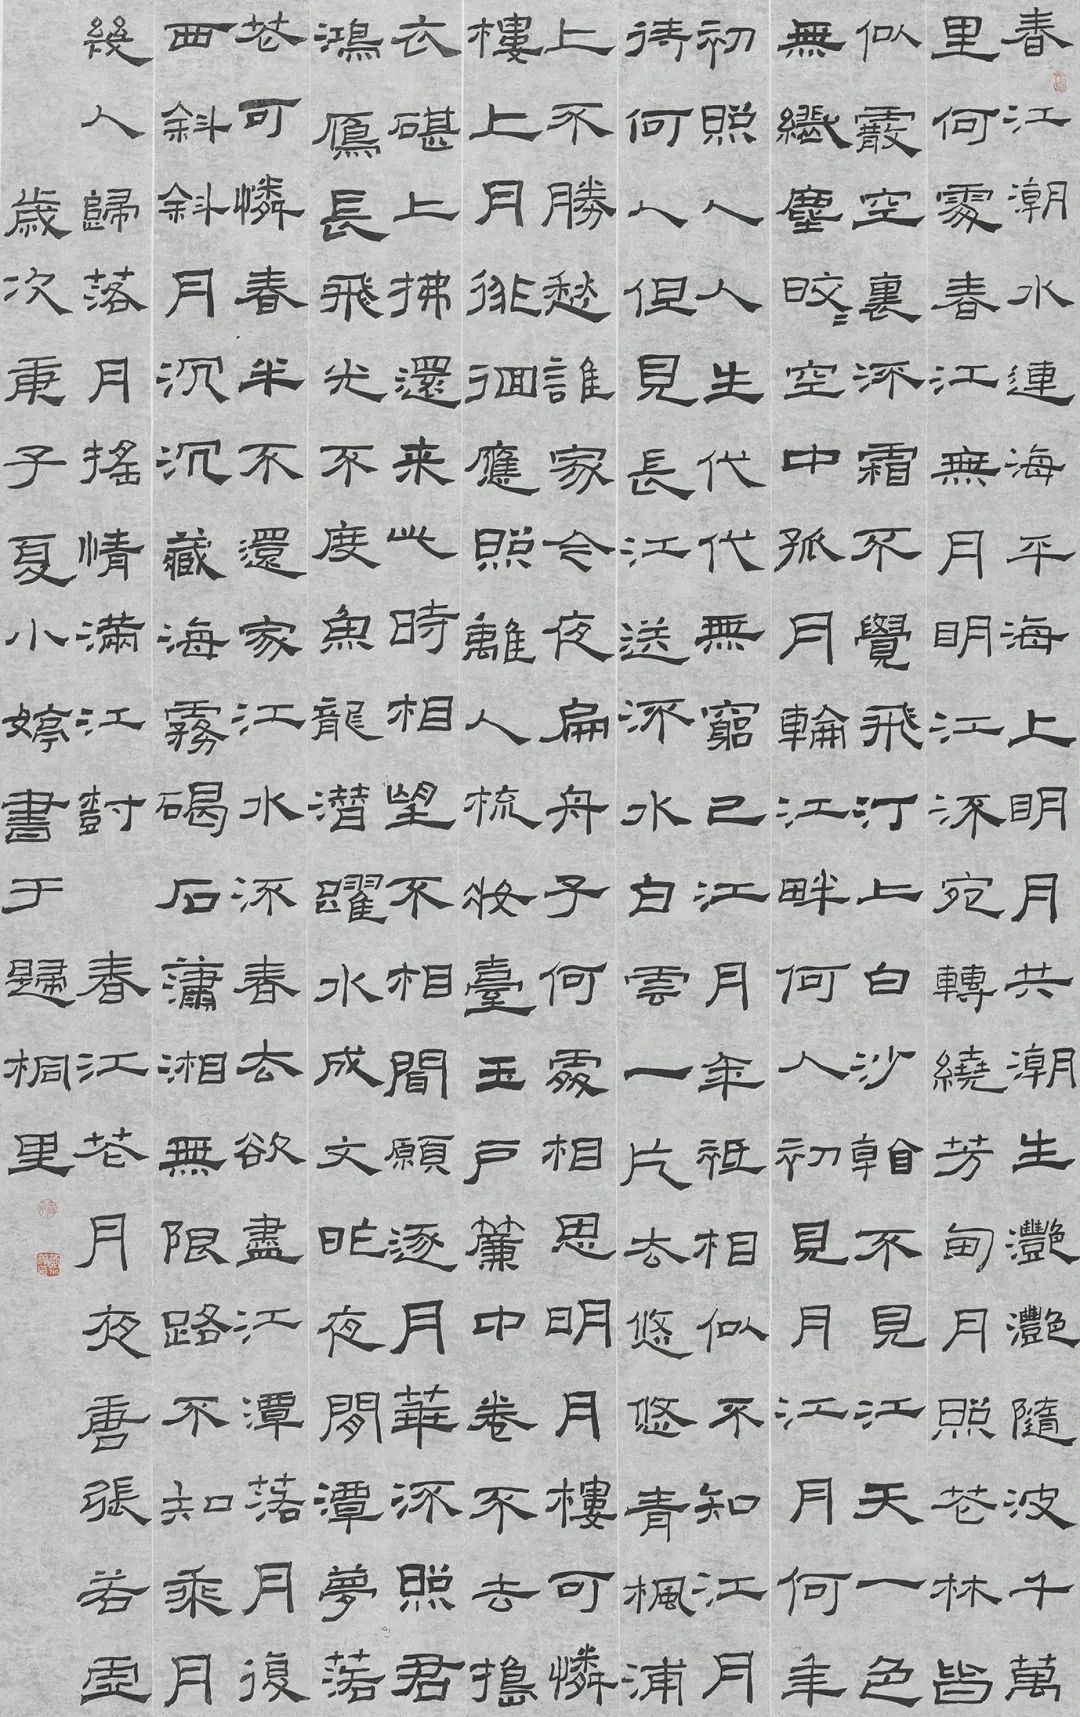 春江潮水連海平海上明月共潮生灩灩隨波千萬
里何處春江無月明江流宛轉繞芳甸月照花林皆
似霰空裏流霜不覺飛汀上白沙看不見江天一色
無纖塵皎〻空中孤月輪江畔何人初見月江月何年
初照人人生代代無窮已江月年祗相似不知江月
待何人但見長江送流水白雲一片去悠悠青楓浦
上不勝愁誰家今夜扁舟子何處相思明月樓可憐
樓上月徘徊應照離人梳妝臺玉户簾中卷不去搗
衣碪上拂還来此時相望不相聞願逐月華流照君
鴻鴈長飛光不度魚龍潛躍水成文昨夜閒潭夢落
花可憐春半不還家江水流春去欲盡江潭落月復
西斜斜月沉沉藏海霧碣石瀟湘無限路不知乘月
幾人歸落月搖情滿江樹 春江花月夜唐張若虛
歲次庚子夏小婷書于歸桐里